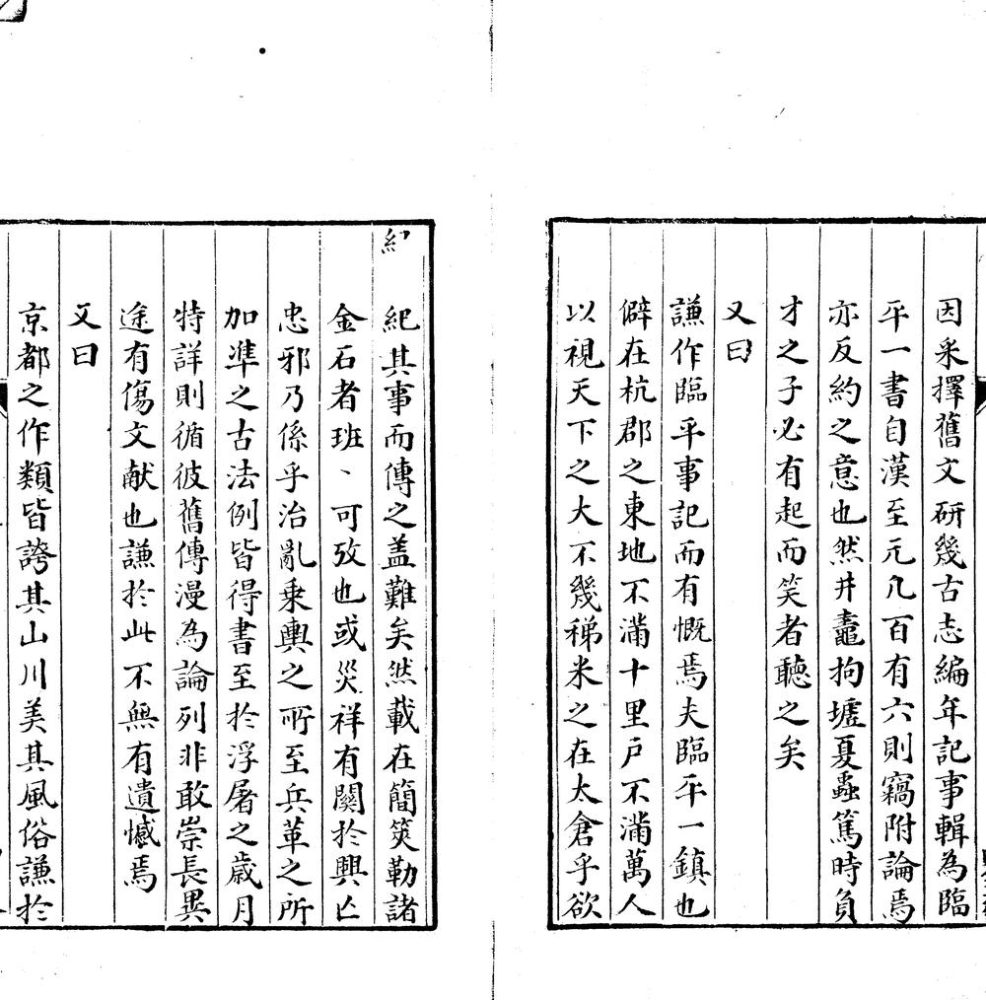 因采擇舊文研幾古志編年記事輯為臨
平一書自漢至元凡百有六則竊附論焉
亦反約之意也然井鼃拘墟夏蟲篤時負
才之子必有起而笑者聽之矣
又曰
謙作臨平事記而有慨焉夫臨平一鎮也
僻在杭郡之東地不滿十里戶不滿萬人
以視天下之大不幾稊米之在太倉乎欲
紀
紀其事而傳之盖難矣然載在簡筴勒諸
金石者班、可攷也或災祥有關於興亾
忠邪乃係乎治亂乗輿之所至兵革之所
加凖之古法例皆得書至於浮屠之歲月
特詳則循彼舊傳漫為論列非敢崇長異
途有傷文献也謙於此不無有遺憾焉
又曰
京都之作類皆誇其山川美其風俗謙於